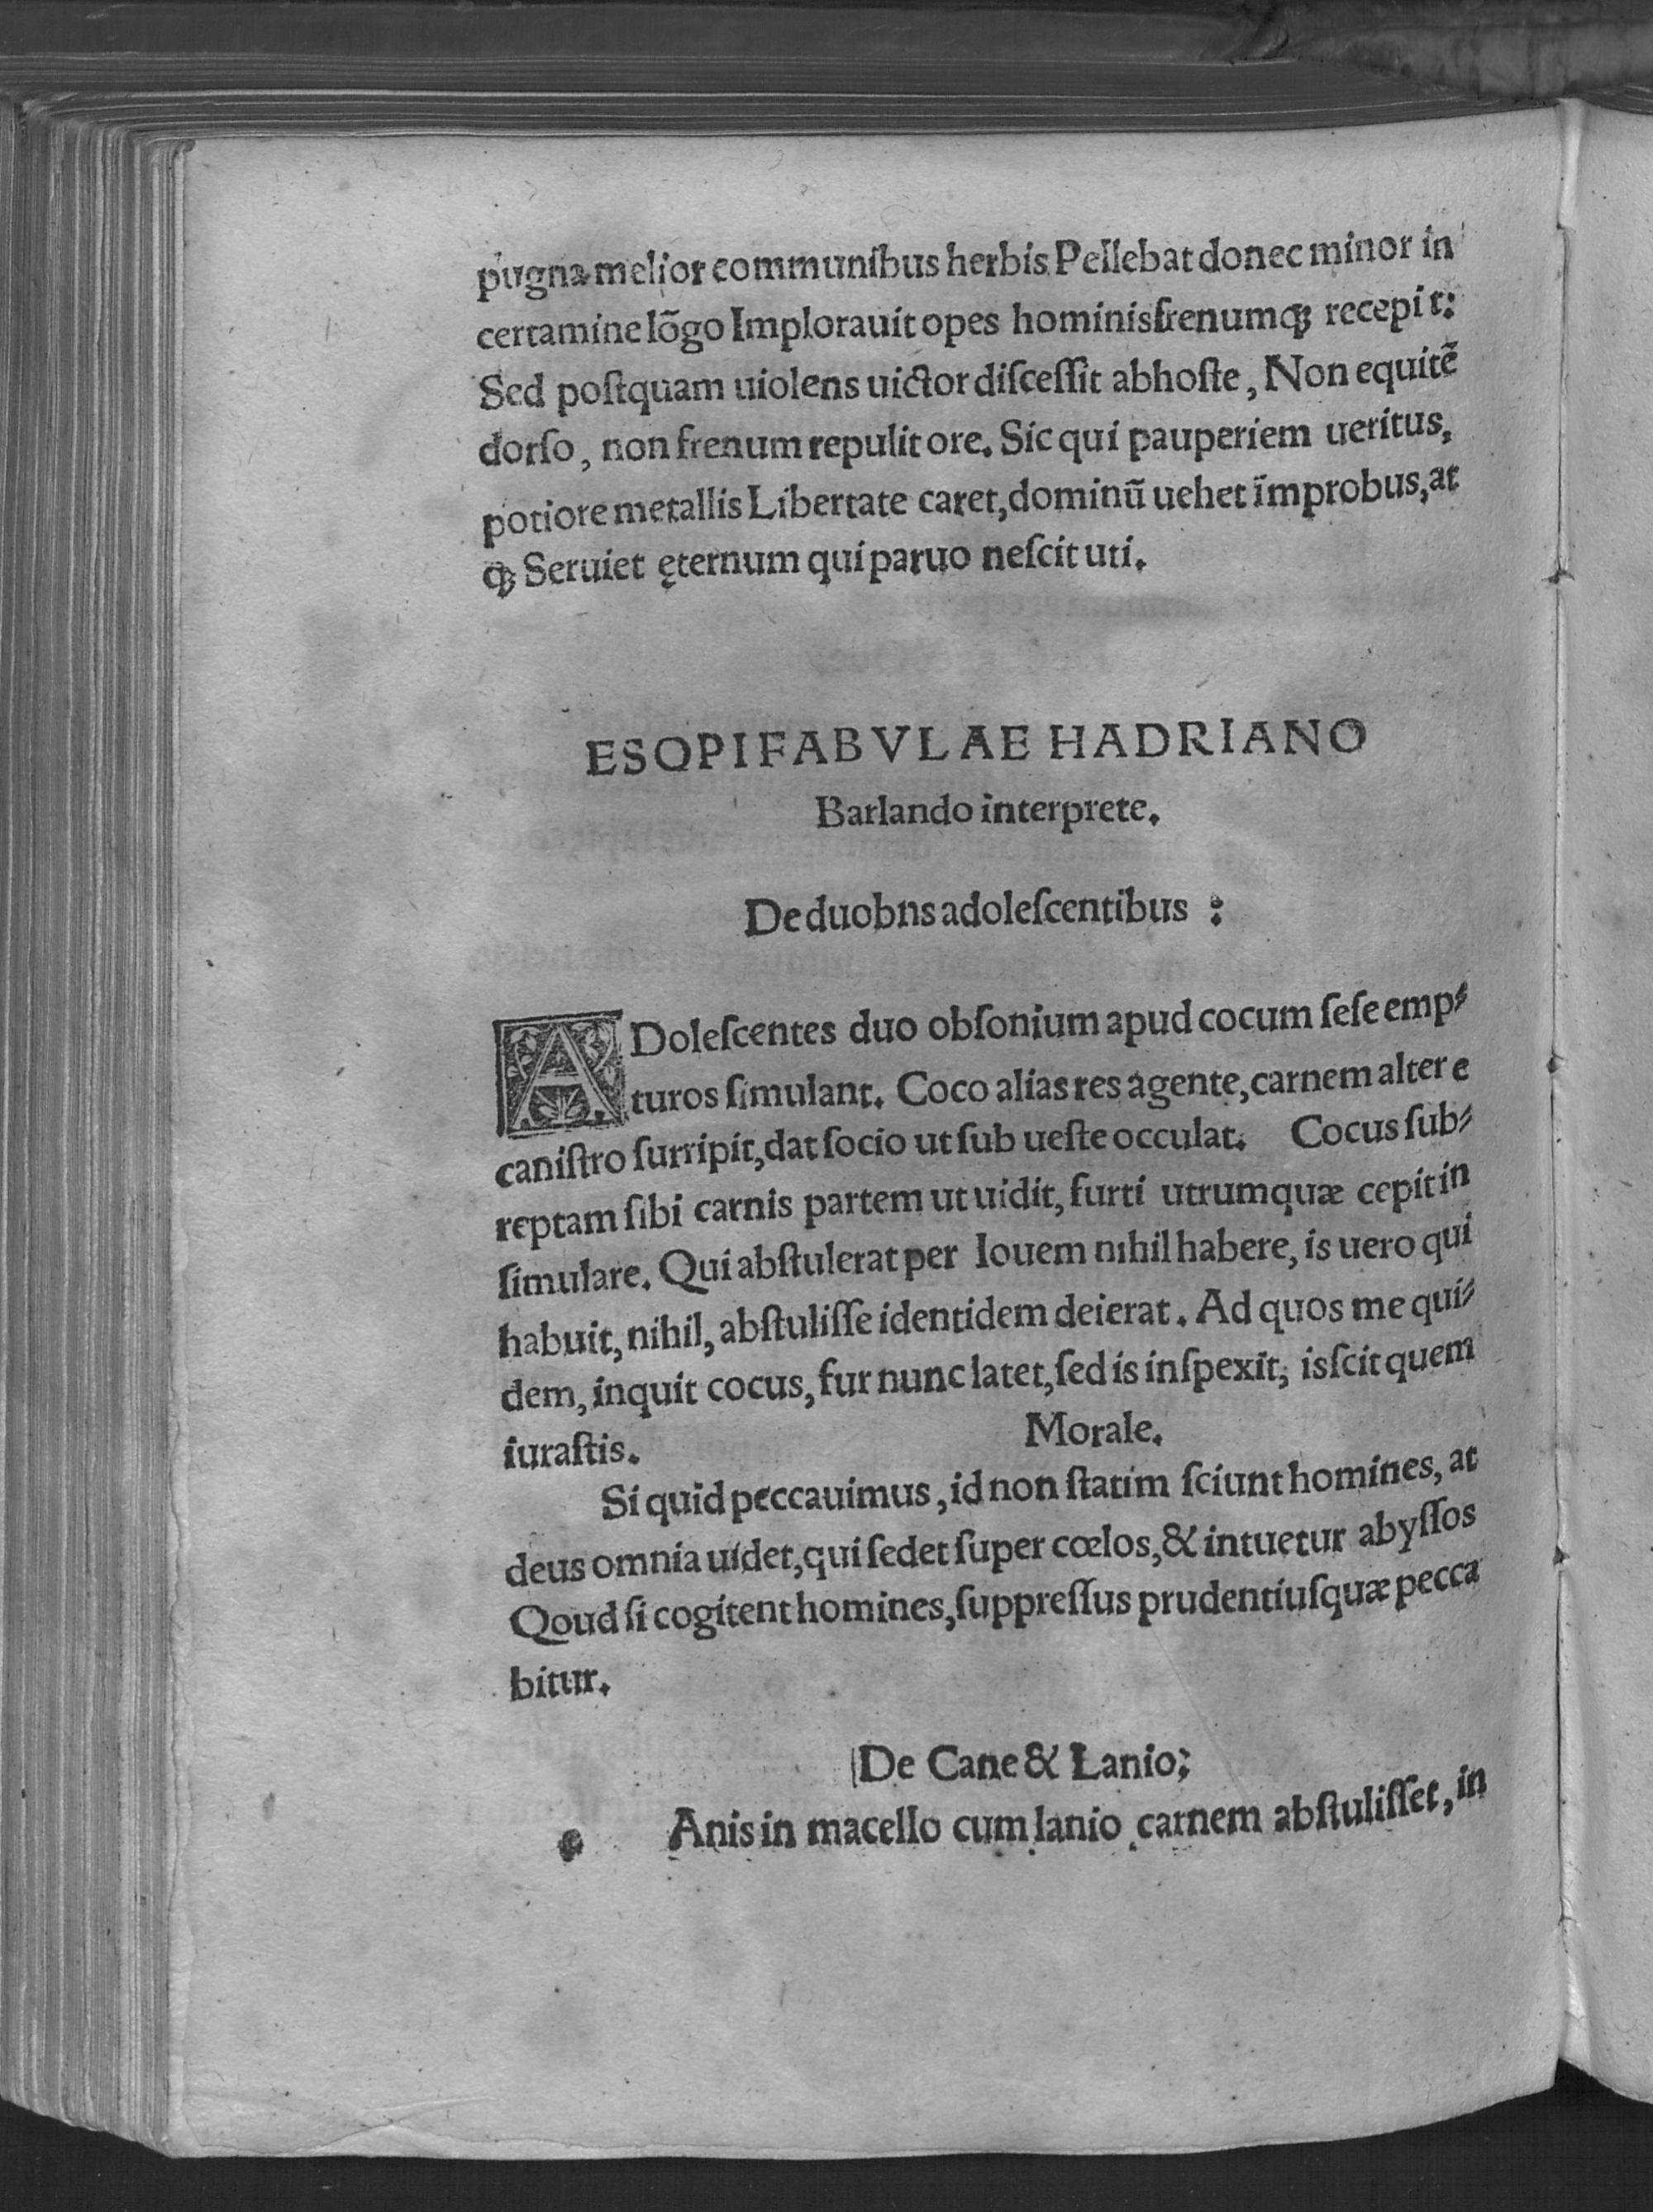 pugna melior communibus herbis Pellebat donec minor in
certamine lõgo Implorauit opes hominis frenumqꝫ recepit:
Sed poſtquam uiolens uictor diſceſſit abhoſte, Non equitẽ
dorſo, non frenum repulit ore. Sic qui pauperiem ueritus,
potiore metallis Libertate caret, dominũ uehet ĩmprobus, at
qꝫ Seruiet ęternum qui paruo neſcit uti.
ESOPI FABVLAE HADRIANO
Barlando interprete.
De duobns adoleſcentibus :
ADoleſcentes duo obſonium apud cocum ſeſe emp⸗
turos ſimulant. Coco alias res agente, carnem alter e
caniſtro ſurripit, dat ſocio ut ſub ueſte occulat. Cocus ſub⸗
reptam ſibi carnis partem ut uidit, furti utrumquæ cepit in
ſimulare. Qui abſtulerat per Iouem nihil habere, is uero qui
habuit, nihil, abſtuliſſe identidem deierat. Ad quos me qui⸗
dem, inquit cocus, fur nunc latet, ſed is inſpexit, is ſcit quem
iuraſtis. Morale.
Si quid peccauimus, id non ſtatim ſciunt homines, at
deus omnia uidet, qui ſedet ſuper cœlos, & intuetur abyſſos
Qoud ſi cogitent homines, ſuppreſſus prudentiuſquæ pecca
bitur.
De Cane & Lanio;
c Anis in macello cum lanio carnem abſtuliſſet, in